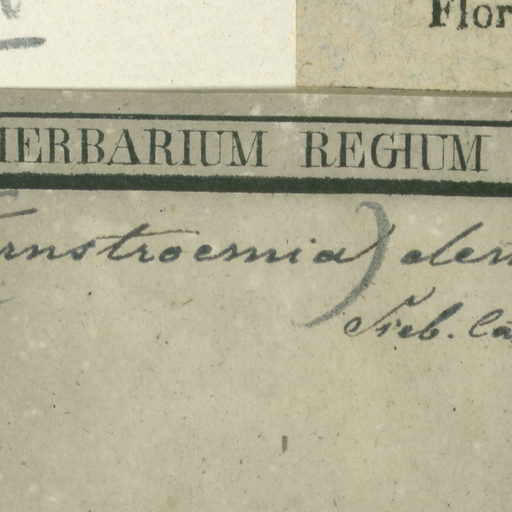 Flor
HERBARIUM REGIUM
rnstroemia) den
Sieb. Ca